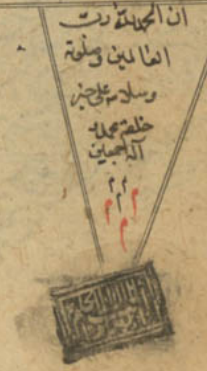 ان الحمد لله رب
العالمين وصلوة
وسلام على خير
خلقه محمد و
اله اجمعين